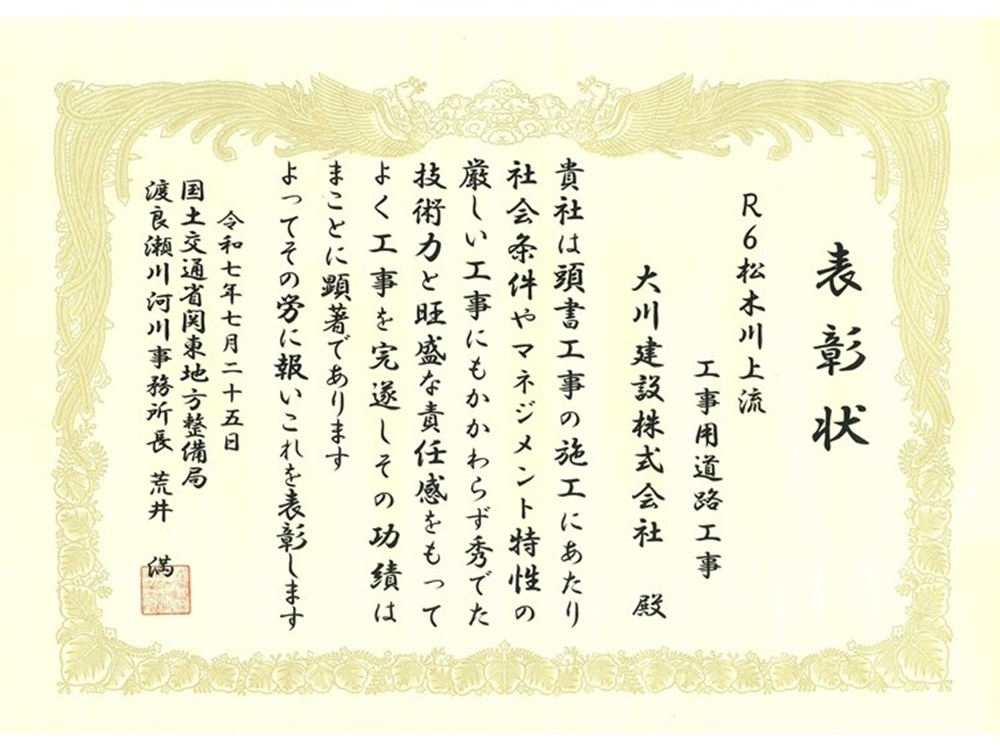 表彰状
R6松木川上流
工事用道路工事
大川建設株式会社 殿
貴社は頭書工事の施工にあたり
社会条件やマネジメント特性の
厳しい工事にもかかわらず秀でた
技術力と旺盛な責任感をもって
よく工事を完遂しその功績は
まことに顕著であります
よってその労に報いこれを表彰します
令和七年七月二十五日
国土交通省関東地方整備局
渡良瀬川河川事務所長 荒井 満